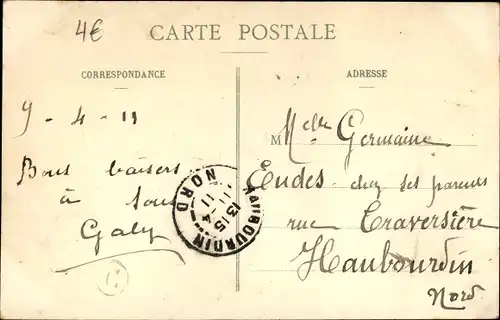 4€
CARTE POSTALE
CORRESPONDANCE
ADRESSE
9 - 4 - 11
Bons baisers
à tous
Galy
Melle Germaine
Eudes chez ses parents
rue Traversière
Haubourdin
Nord
HAUBOURDIN
13 15
11
NORD